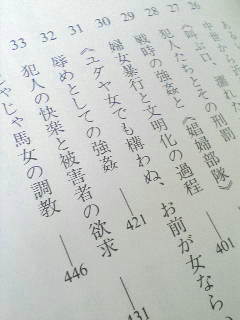 26 《叫ぶ口、濡れた
27 犯人たちとその刑罰
28 戦時の強姦と《娼婦部隊》
29 婦女暴行と文明化の過程 401
30 《ユダヤ女でも構わぬ、お前が女なら、
31 辱めとしての強姦 421
32 犯人の快楽と被害者の欲求 431
33 じゃじゃ馬女の調教 446